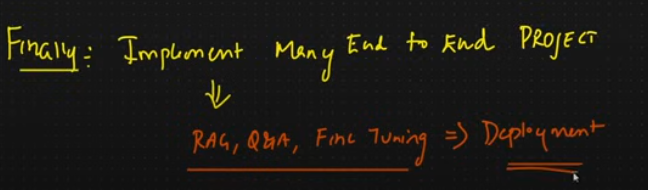 Finally: Implement Many End to End PROJECT
RAG, Q&A, Fine Tuning => Deployment